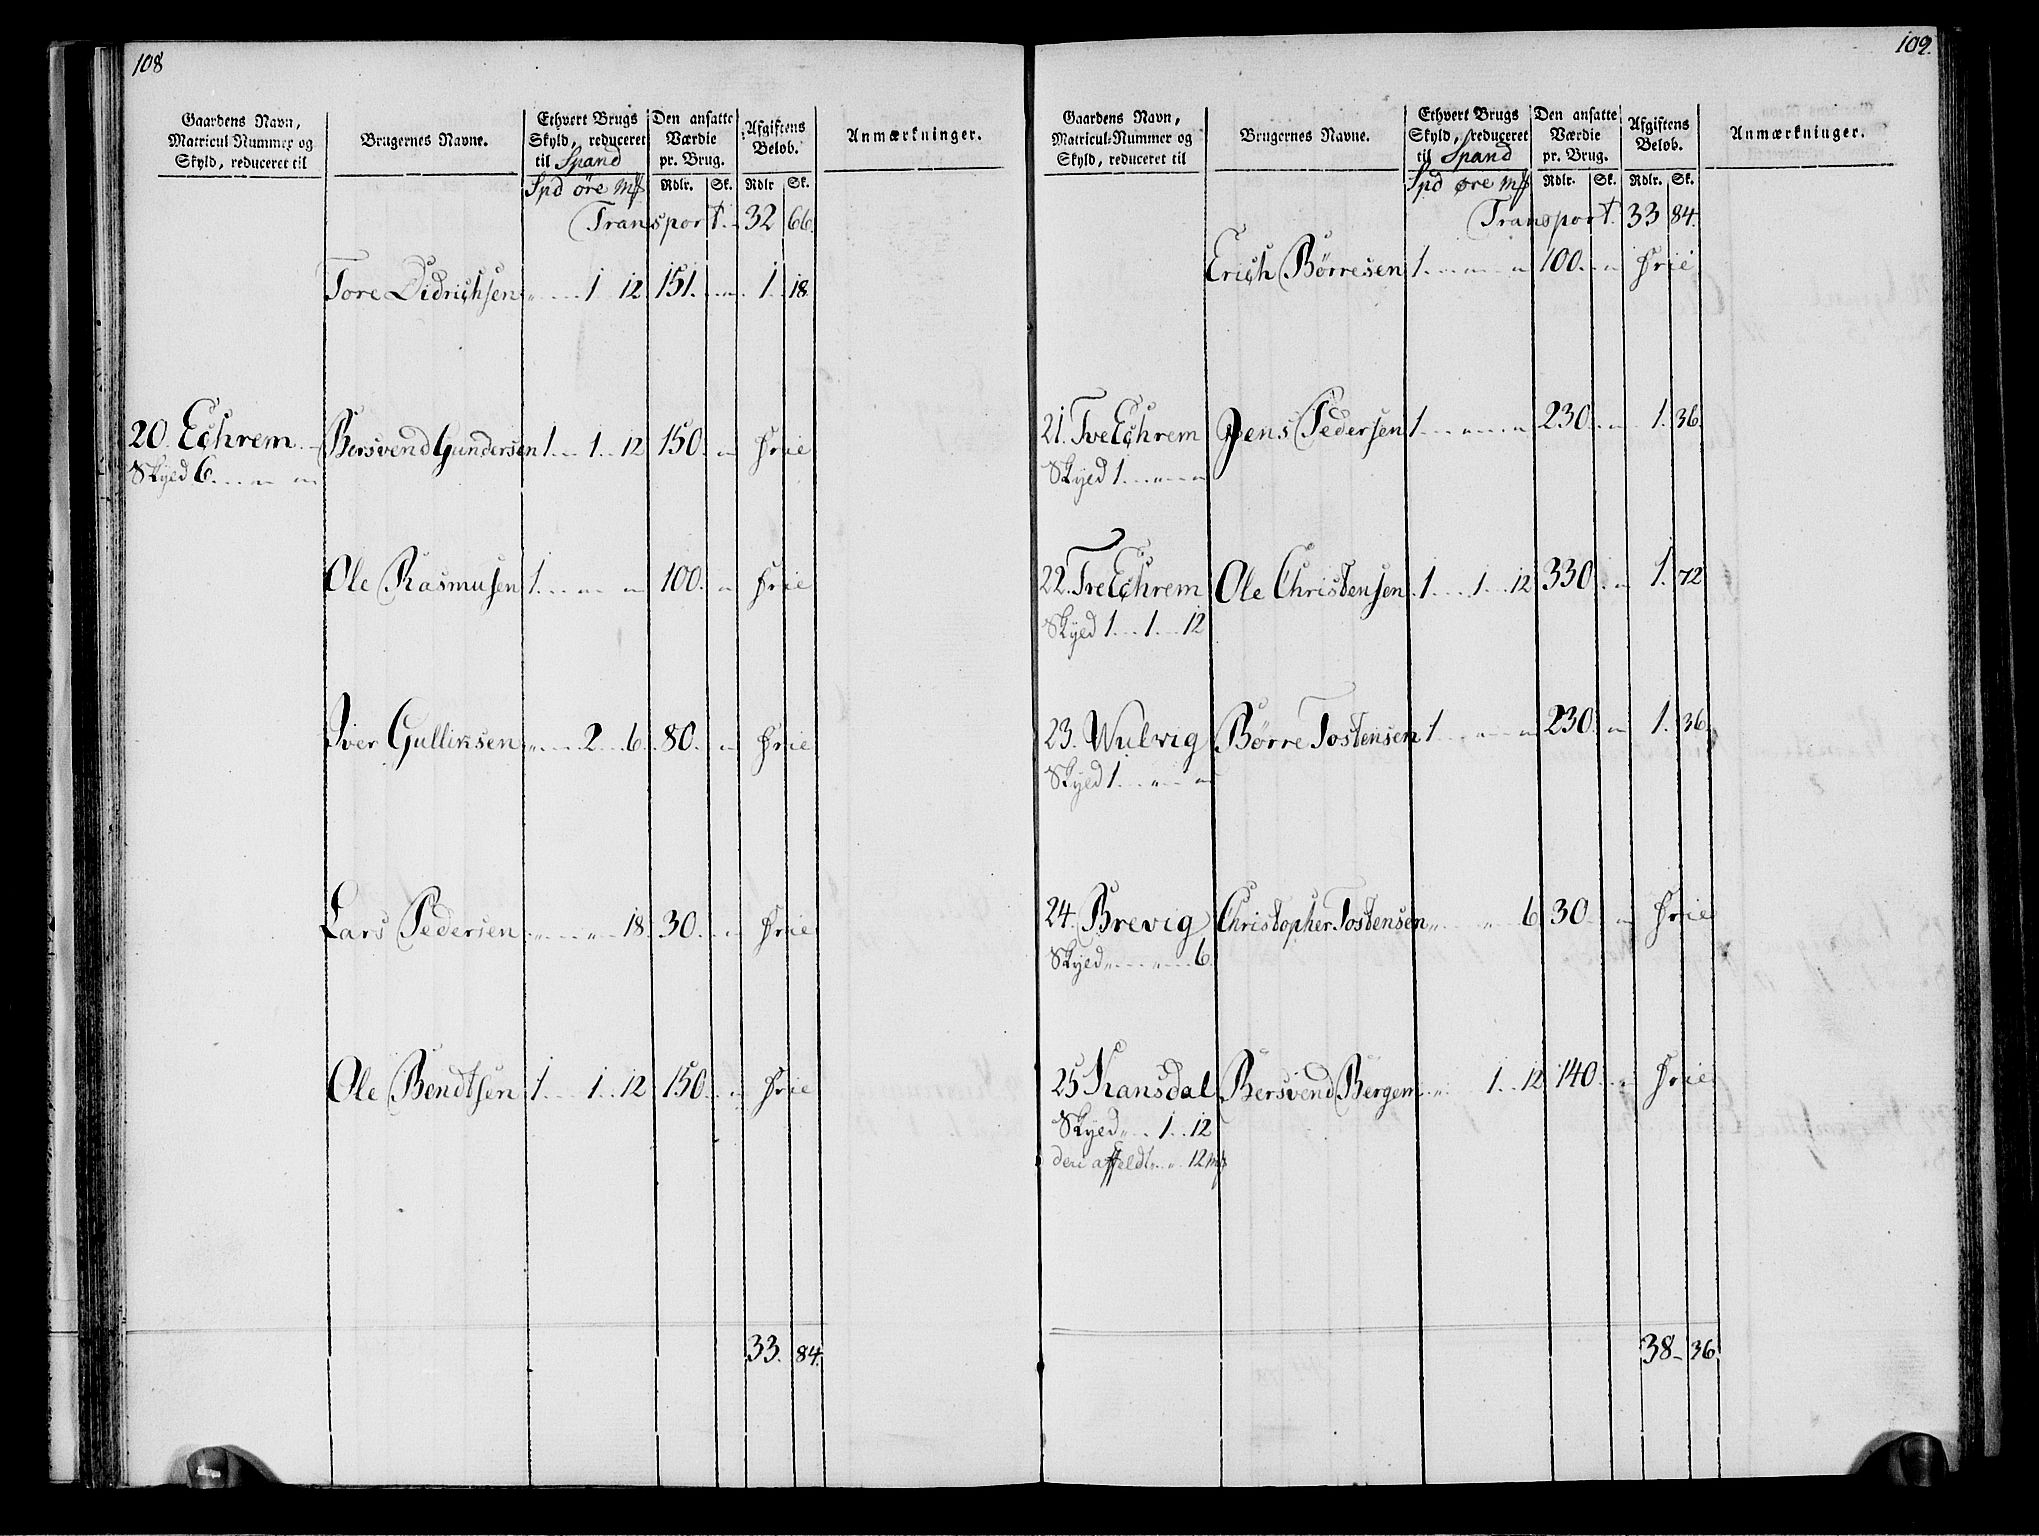 108
Gaardens Navn, Matricul Nummer og Skyld, reduceret til
Brugernes Navne.
Ethvert Brugs Skyld, reduceret til Spand
Den ansatte Værdie pr. Brug.
Afgiftens Beløb.
Anmærkninger.
Spd øre m͞k Rdlr. Sk. Rdlr Sk.
Transport. 32 66.
Tore Didrichsen „ 1 12 151. „ 1 18
20. Echrem Bersvend Gundersen 1 1 12 150. „ Frie
Skyld 6. „ „
Ole Rasmusen 1 „ „ 100. „ Frie
Iver Gulliksen „ 2 6 80. „ Frie
Lars Pedersen „ „ 18. 30. „ Frie
Ole Bendtsen 1 1 12 150. „ Frie
33. 84.
109.
Gaardens Navn, Matricul-Nummer og Skyld, reduceret til
Brugernes Navne.
Ethvert Brugs Skyld, reduceret til Spand
Den ansatte Værdie pr. Brug.
Afgiftens Beløb.
Anmærkninger.
Spd øre m͞k Rdlr. Sk. Rdlr. Sk.
Transport. 33 84.
Erich Börresen 1 „ „ 100. „ Frie
21. Tve Echrem Jens Pedersen 1 „ „ 230. „ 1. 36.
Skyld 1. „ „
22. Tve Echrem Ole Christensen 1 1 12 330. „ 1. 72
Skyld 1 1 12
23. Wulvig Börre Tostensen 1 „ „ 230. „ 1. 36.
Skyld 1. „ „
24. Brevig Christopher Tostensen „ „ 6 30. „ Frie
Skyld „ „ 6.
25 Kansdal Bersvend Bergem „ 1 12 140. „ Frie
Skyld „ 1 12
deri affeldt „ „ 12 m͞k
38 36